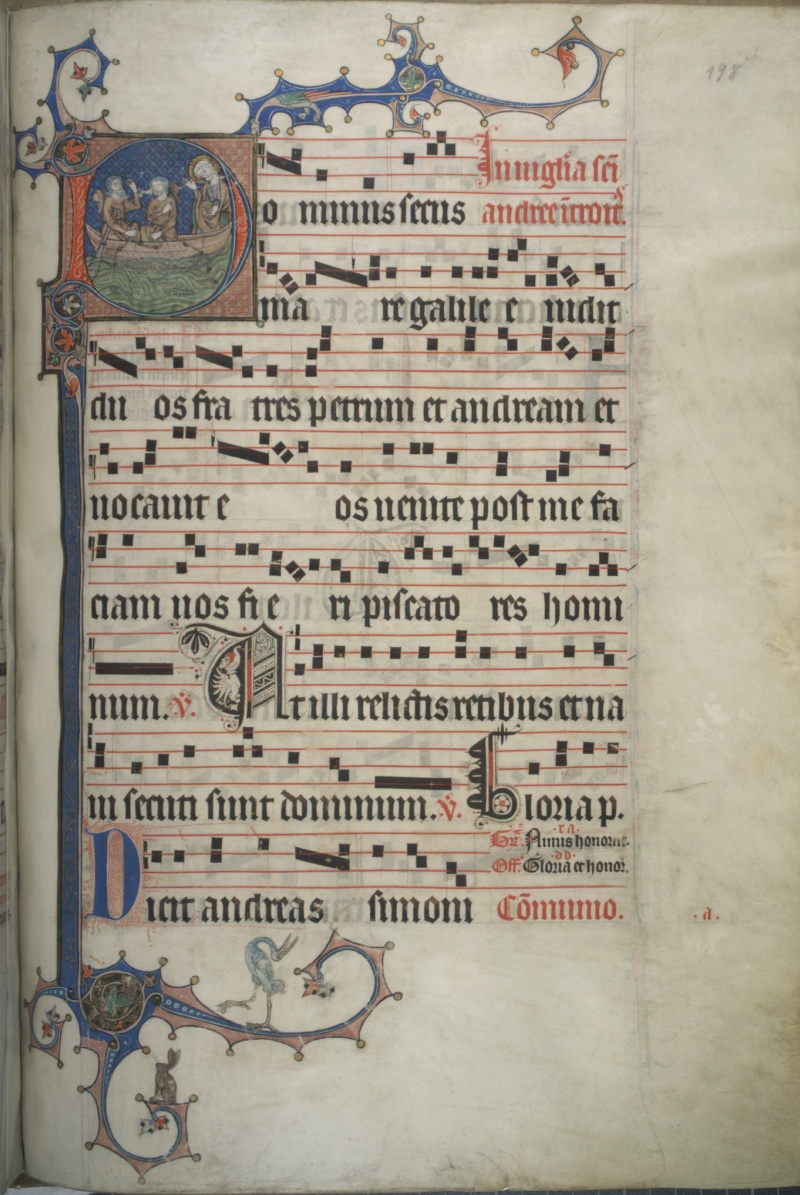 198
In uigl'ia sc̄i
Do minus secus andree ītroit'.
ma re galile e uidit
du os fra tres petrum et andream et
uocauit e os uenite post me fa
ciam uos fi e ri piscato res homi
num. v̄. At illi relictis retibus et na
ui secuti sunt dominum. v̄. Gloria p.
Gr̄. Nimis honorat'.
Off. Gloria et honor.
Dicit andreas simoni Cōmunio.
.a.